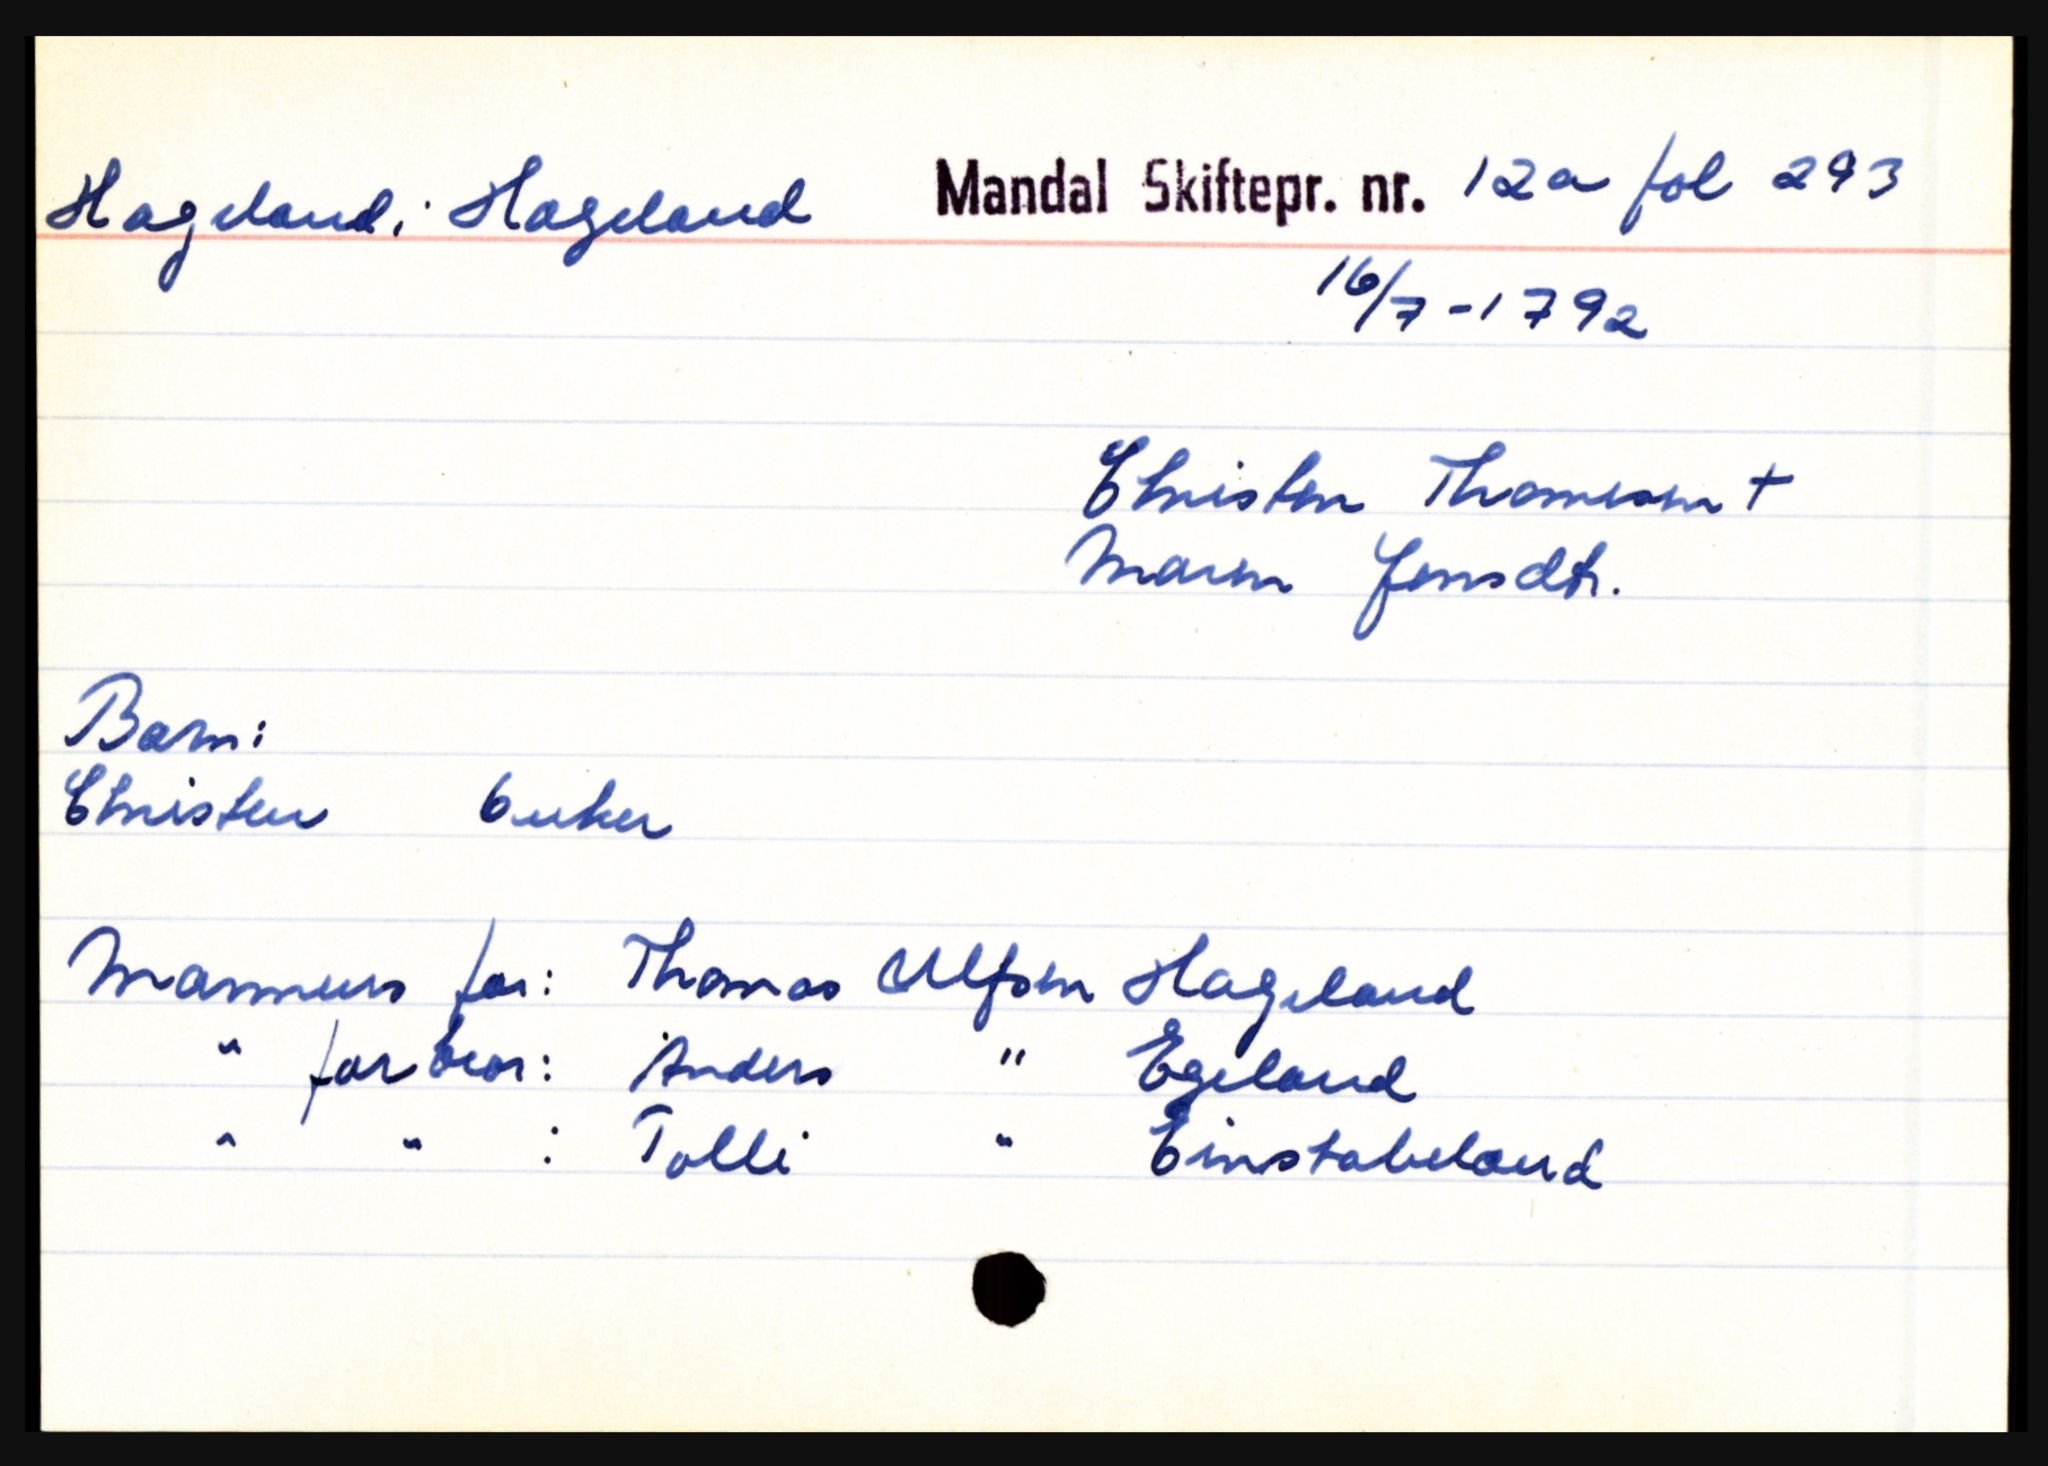 Hageland, i Hageland Mandal Skiftepr. nr. 12a fol 293
16/7-1792
Christen Thomesen +
Maren Jensdtr.
Barn:
Christen 6 uker
Mannens far: Thomas Ulfsen Hageland
" farbror: Anders " Egeland
" " : Tolli " Einstabeland